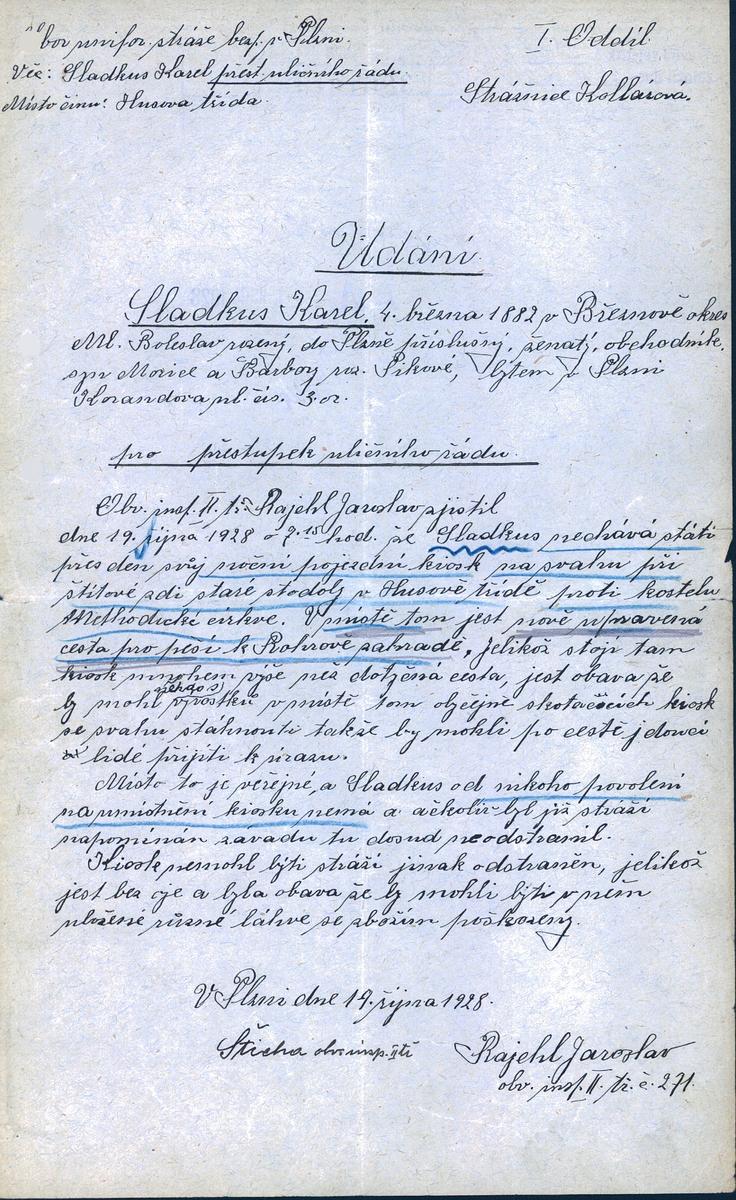 bor unifor. stráže bezp. v Plzni.
I. Oddíl
Věc: Sladkus Karel přest. uličního řádu.
Strážnice Kollárová.
Místo činu: Husova třída.
Udání.
Sladkus Karel, 4. března 1882 v Březnově okres
Ml. Boleslav rozený, do Plzně příslušný, ženatý, obchodník,
syn Morice a Barbory roz. Pikové, bytem v Plzni
Korandova ul. čís. 3.
pro přestupek uličního řádu.
Obv. insp. II. tř. Rajchl Jaroslav zjistil
dne 19. října 1928 o 9.15 hod. že Sladkus nechává státi
přes den svůj noční pojezdní kiosk na svahu při
štítové zdi staré stodoly v Husově třídě proti kostelu
Methodické církve. V místě tom jest nově upravená
cesta pro pěší k Rohrově zahradě, jelikož stojí tam
kiosk mnohem výše než dotyčená cesta, jest obava že
by mohl někdo z výrostků v místě tom obyčejně skotačících kiosk
se svahu stáhnouti takže by mohli po cestě jdoucí
lidé přijíti k úrazu.
Místo to je veřejné, a Sladkus od nikoho povolení
na umístnění kiosku nemá a ačkoliv byl již stráží
napomínán závadu tu dosud neodstranil.
Kiosk nemohl býti stráží jinak odstraněn, jelikož
jest bez oje a byla obava že by mohli býti v něm
uložené různé láhve se zbožím poškozeny.
V Plzni dne 19. října 1928.
Šticha obv. insp. II tř
Rajchl Jaroslav
obv. insp. II. tř. č. 271.